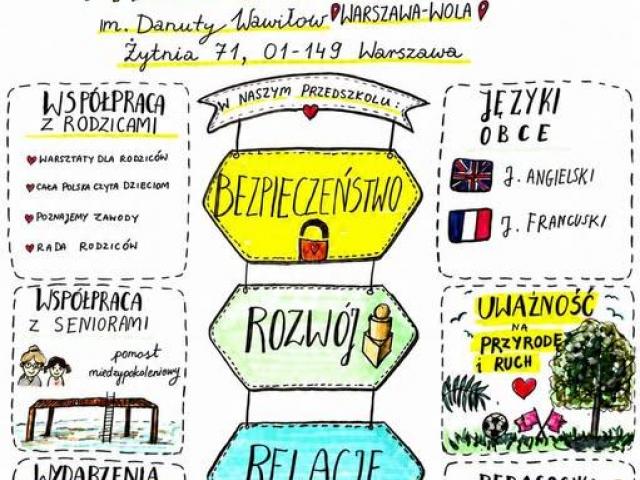 im. Danuty Wawiłow WARSZAWA-WOLA
Żytnia 71, 01-149 Warszawa
WSPÓŁPRACA
Z RODZICAMI
WARSZTATY DLA RODZICÓW
CAŁA POLSKA CZYTA DZIECIOM
POZNAJEMY ZAWODY
RADA RODZICÓW
W NASZYM PRZEDSZKOLU:
BEZPIECZEŃSTWO
ROZWÓJ
RELACJE
JĘZYKI
OBCE
J. ANGIELSKI
J. FRANCUSKI
WSPÓŁPRACA
Z SENIORAMI
pomost
międzypokoleniowy
UWAŻNOŚĆ
NA
PRZYRODĘ
i RUCH
WYDARZENIA